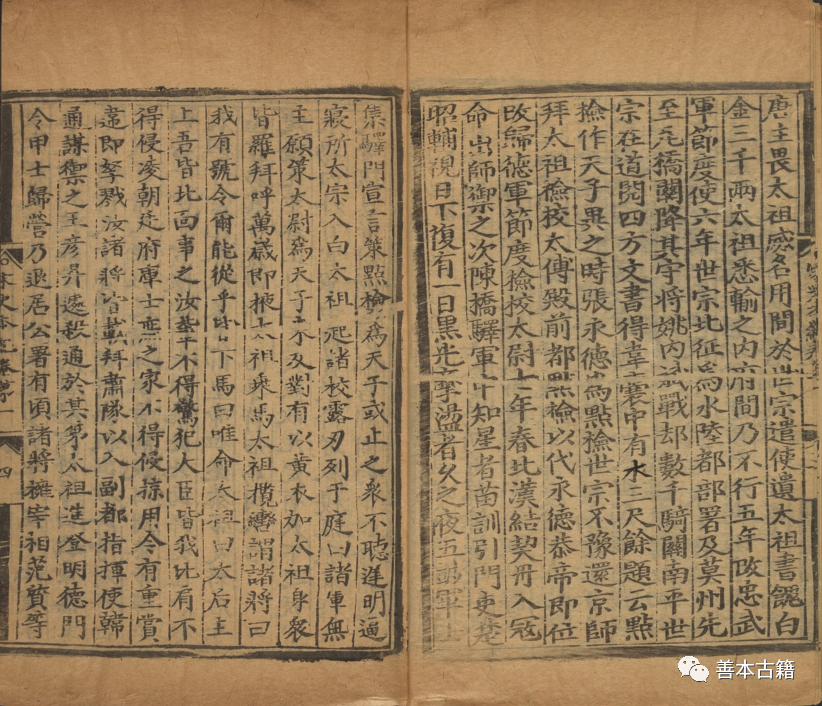 唐主畏太祖威名用間於世宗遣使遺太祖書餽白
金三千兩太祖悉輸之內府間乃不行五年改忠武
軍節度使六年世宗北征爲水陸都部署及莫州先
至瓦橋關降其守將姚內斌戰却數千騎關南平世
宗在道閱四方文書得韋囊中有木三尺餘題云點
檢作天子異之時張永德爲點檢世宗不豫還京師
拜太祖檢校太傅殿前都點檢以代永德恭帝即位
改歸德軍節度檢校太尉七年春北漢結契丹入寇
命出師禦之次陳橋驛軍中知星者苗訓引門吏楚
昭輔視日下復有一日黑光摩盪者久之夜五鼓軍士
集驛門宣言策點檢爲天子或止之衆不聽遲明逼
寢所太宗入白太祖起諸校露刃列于庭曰諸軍無
主願策太尉爲天子未及對有以黃衣加太祖身衆
皆羅拜呼萬歲即掖太祖乘馬太祖攬轡謂諸將曰
我有號令爾能從乎皆下馬曰唯命太祖曰太后主
上吾皆北面事之汝輩不得驚犯大臣皆我比肩不
得侵凌朝廷府庫士庶之家不得侵掠用令有重賞
違即孥戮汝諸將皆載拜肅隊以入副都指揮使韓
通謀禦之王彥昇遽殺通於其第太祖進登明德門
令甲士歸營乃退居公署有頃諸將擁宰相范質等
宋史本紀卷第一
四
善本古籍